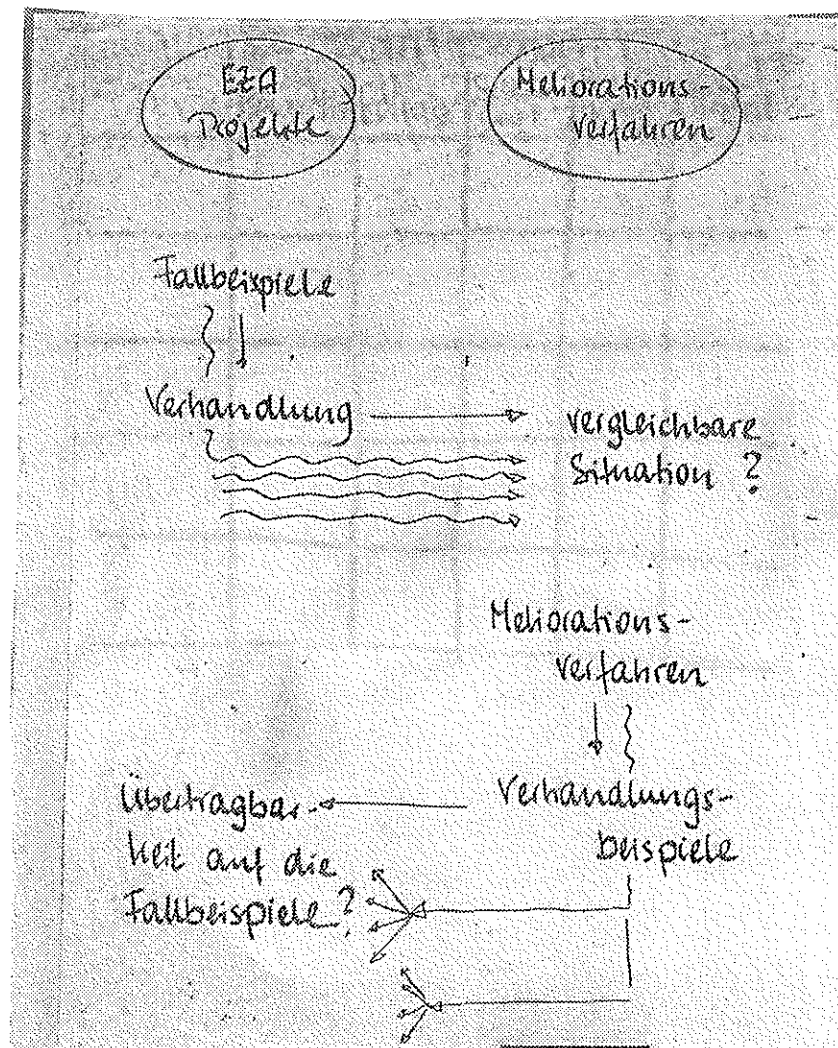 EZA
Projekte
Meliorations-
verfahren
Fallbeispiele
Verhandlung
vergleichbare
Situation ?
Meliorations-
verfahren
Verhandlungs-
beispiele
Übertragbar-
keit auf die
Fallbeispiele?